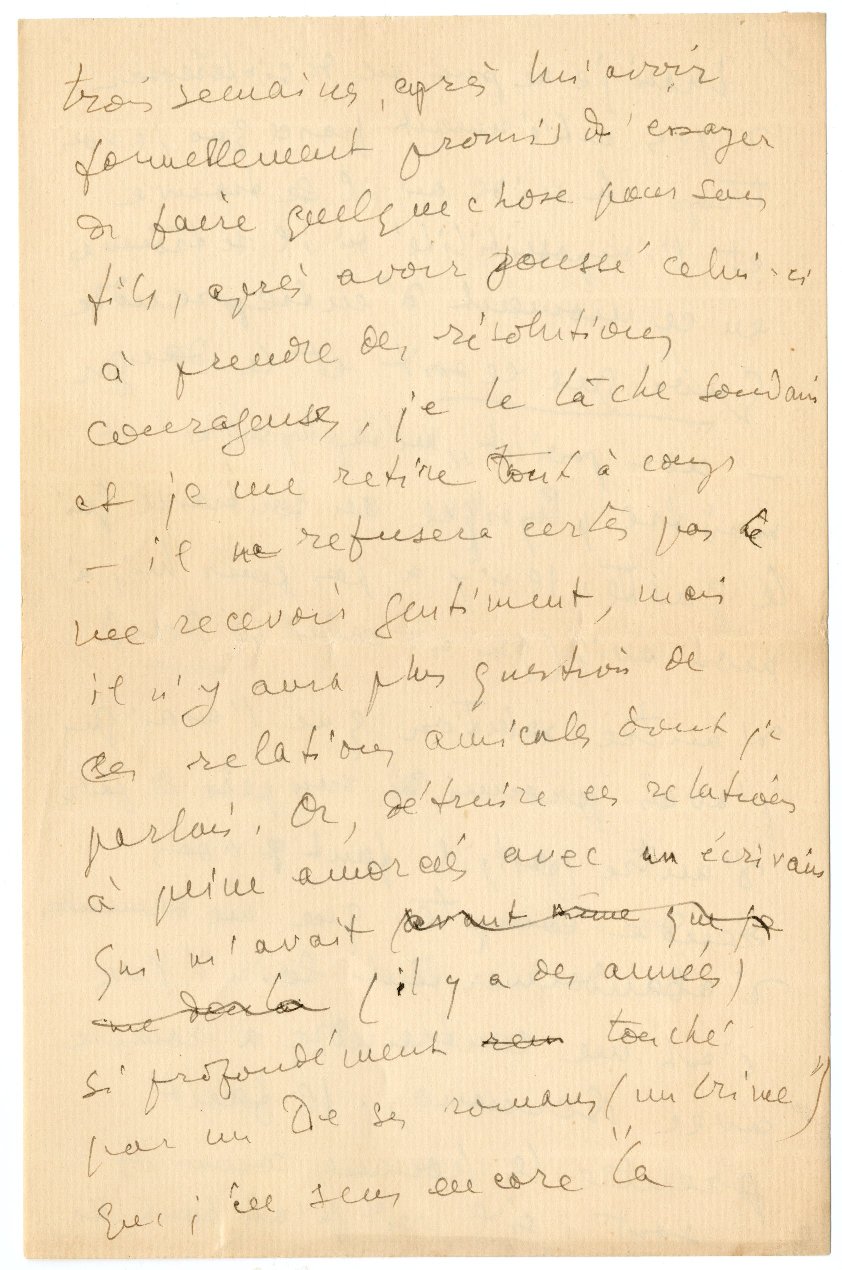 trois semaines, après lui avoir
formellement promis d'essayer
de faire quelque chose pour son
fils, après avoir poussé celui-ci
à prendre des résolutions
courageuses, je le lâche soudain
et je me retire tout à coup
— il ne refusera certes pas de
me recevoir gentiment, mais
il n'y aura plus question de
ces relations amicales dont je
parlais. Or, détruire ces relations
à peine amorcées avec un écrivain
qui m'avait avant même que je
(il y a des années)
si profondément touché
par un de ses romans (un crime")
que j'en sens encore "la